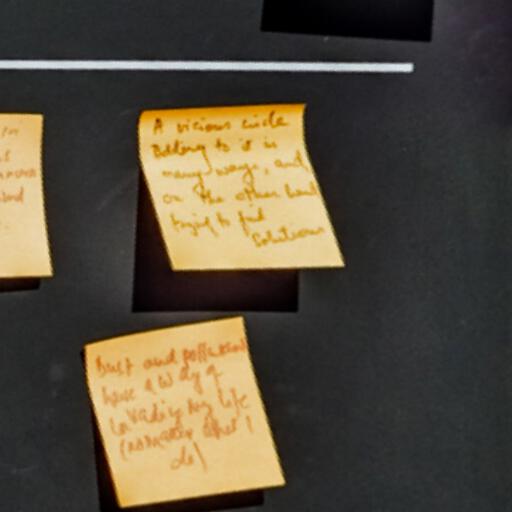 A vicious circle
Belong to it in
many ways, and,
on the other hand
trying to find
Solutions
Dust and pollution
have a way of
invading my life
(no matter what I
do)